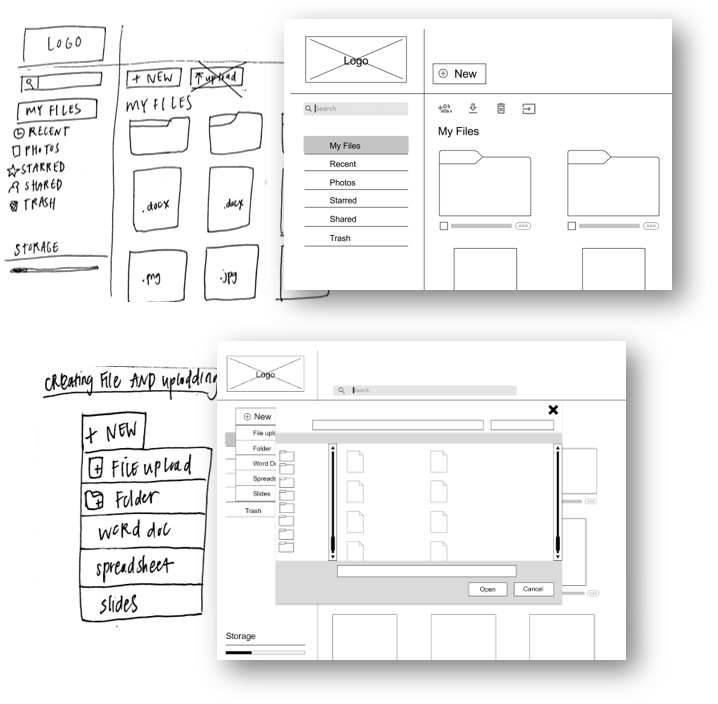 LOGO
+ NEW
↑ upload
MY FILES
MY FILES
RECENT
PHOTOS
STARRED
SHARED
TRASH
STORAGE
.docx
.docx
.png
.jpg
Logo
Search
New
My Files
My Files
Recent
Photos
Starred
Shared
Trash
CREATING FILE AND uploading
+ NEW
File upload
Folder
WORD doc
spreadsheet
slides
Logo
Search
New
File uplo
Folder
Word Do
Spreads
Slides
Trash
Open
Cancel
Storage